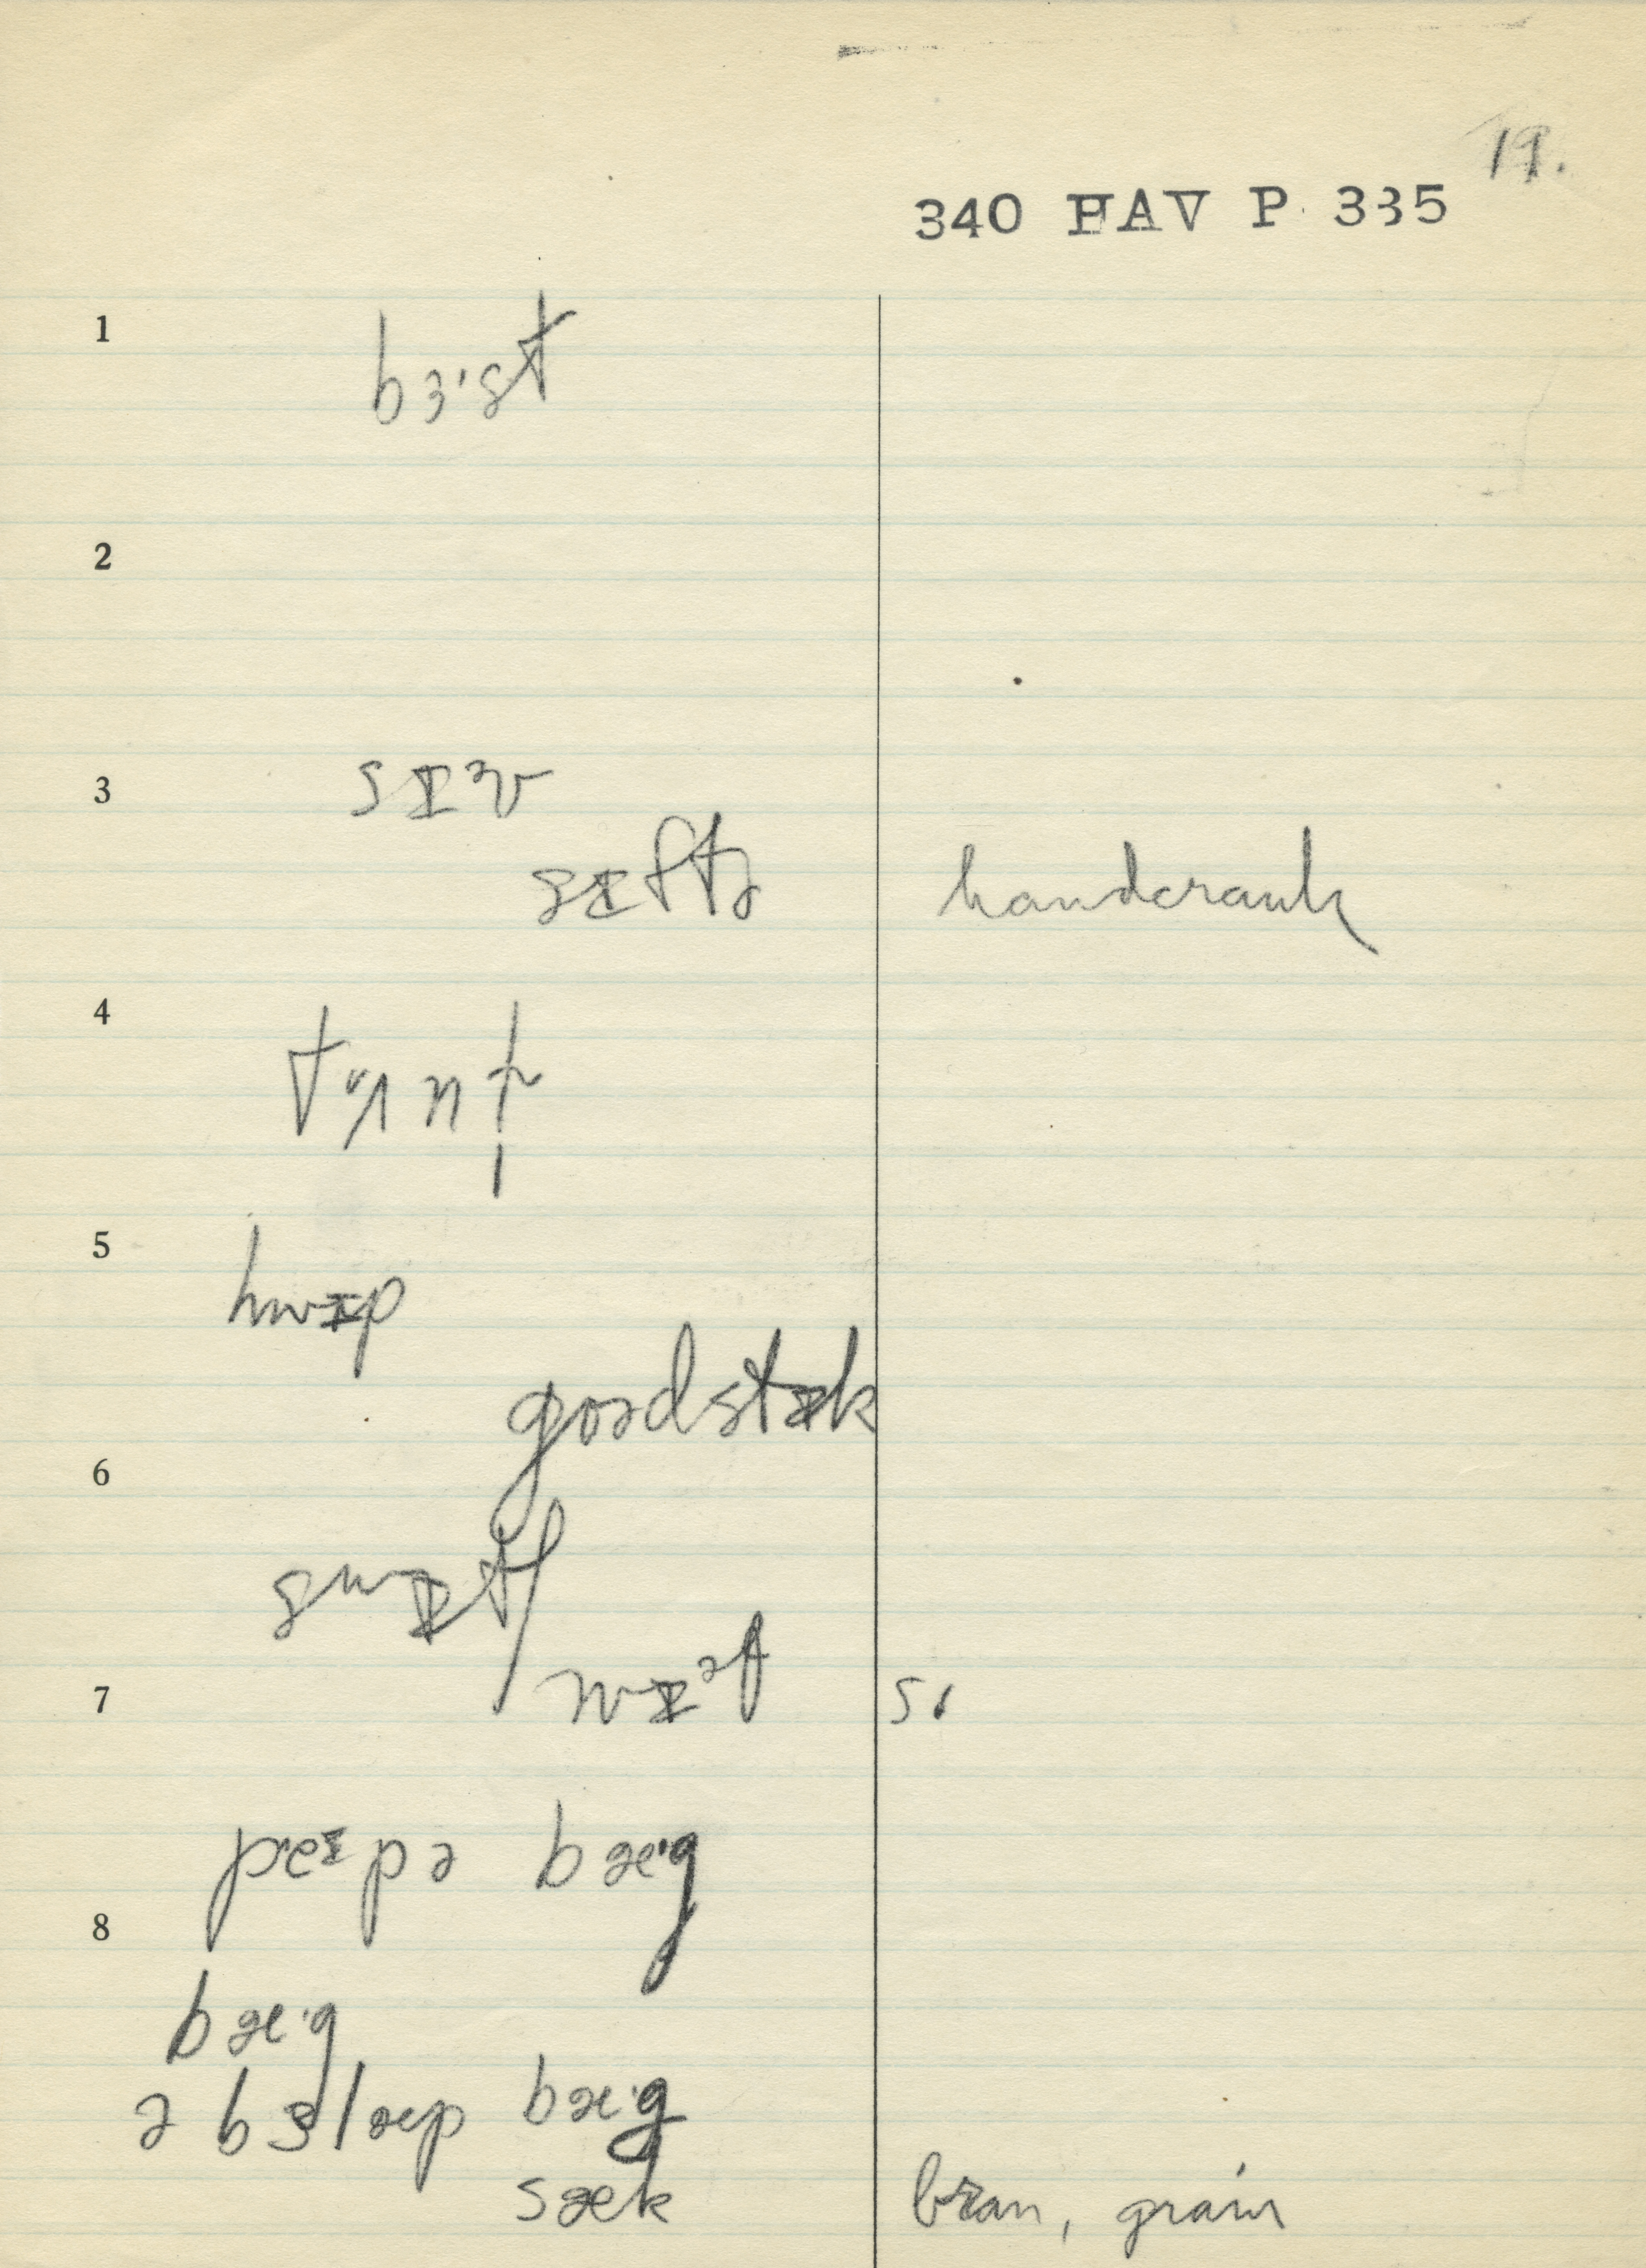 19.
340 HAV P 335
1 bɜ·st
2
3 sɪᵊv
sɪftɚ handcrank
4
5 hwɪp
goədstɪk
6 swɪtʃ
7 wɪᵊf s.
peɪpə bæ·g
8
bæ·g
ə bɜlæp bæ·g
sæk bran, grain